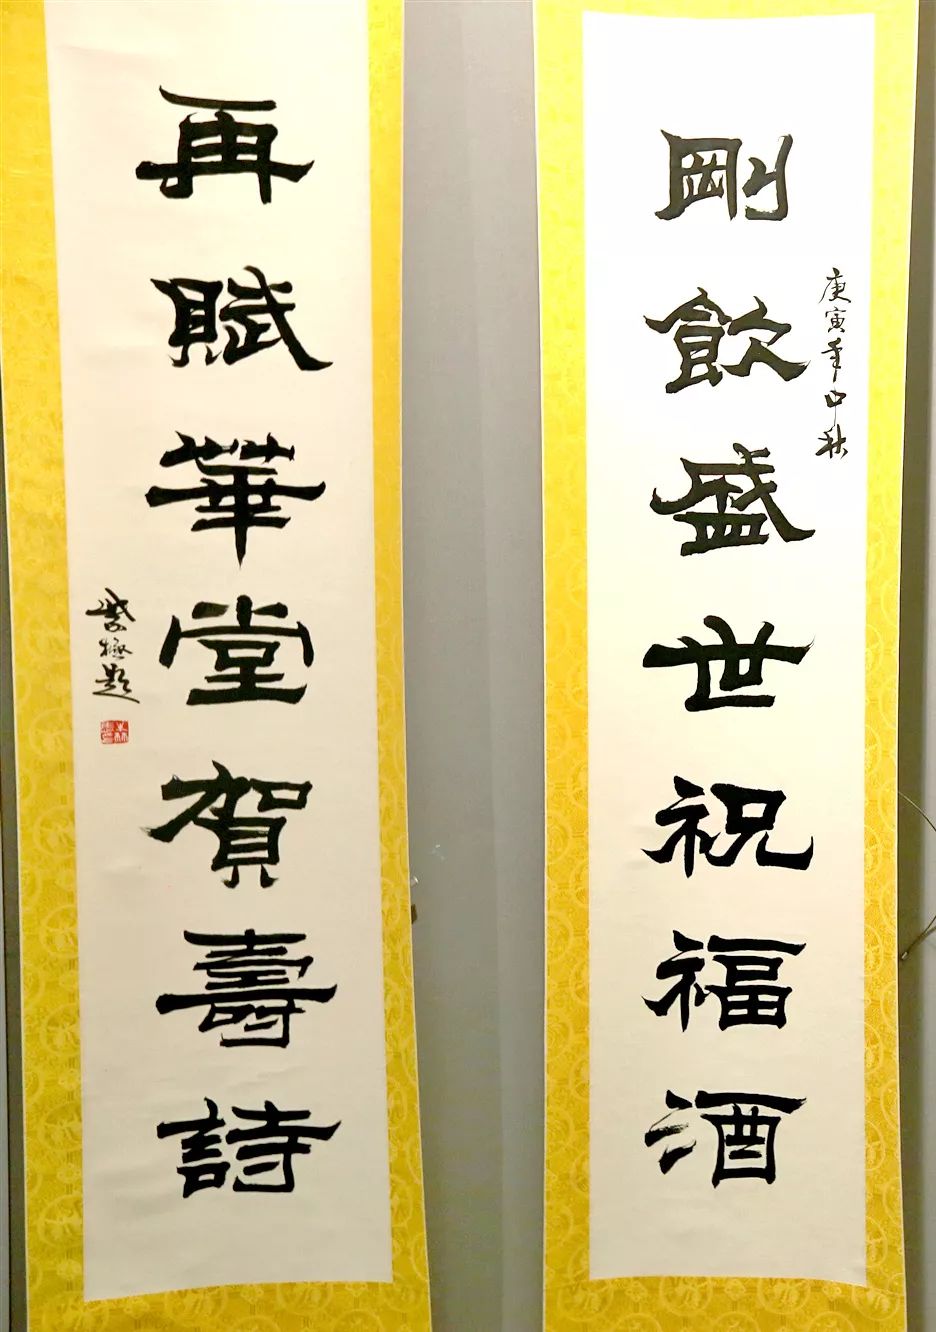 庚寅年中秋
剛飲盛世祝福酒
再賦華堂賀壽詩